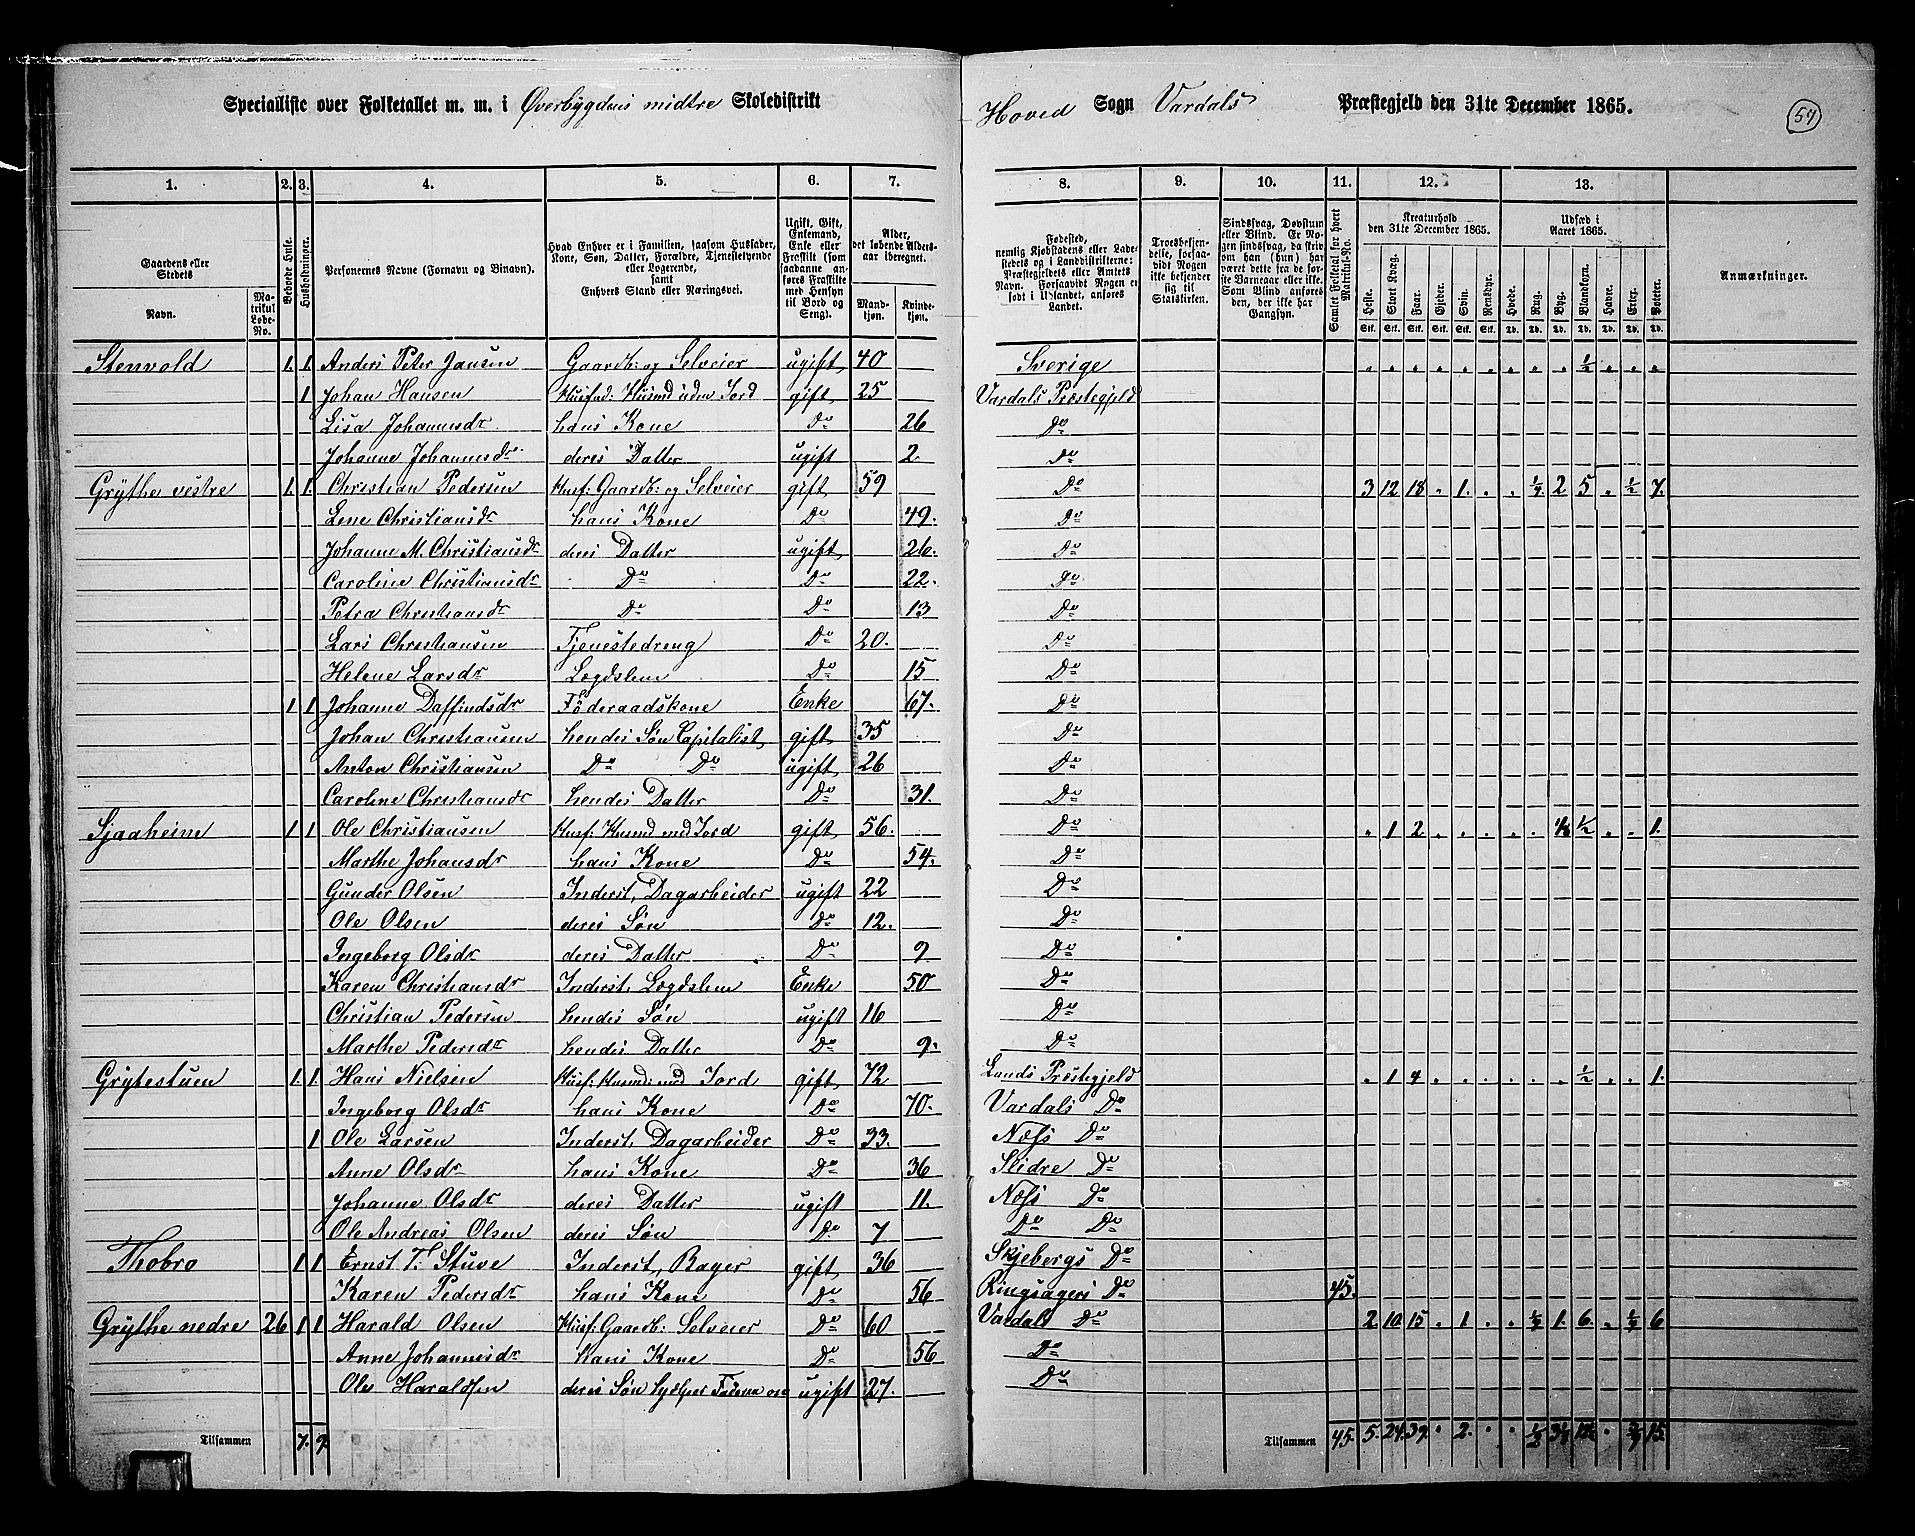 Specialliste over Folketallet m. m. i Øverbygdens midtre Skoledistrikt Hoved Sogn Vardals Præstegjeld den 31te December 1865. 57
1. 2. 3. 4. 5. 6. 7. 8. 9. 10. 11. 12. 13.
Gaardens eller Stedets Navn. Matrikul Løbe-No. Beboede Huse. Husholdninger. Personernes Navne (Fornavn og Binavn). Hvad Enhver er i Familien, saasom Husfader, Kone, Søn, Datter, Forældre, Tjenestetyende eller Logerende, samt Enhvers Stand eller Næringsvei. Ugift, Gift, Enkemand, Enke eller Fraskilt (som saadanne anføres Fraskilte med Hensyn til Bord og Seng). Alder, det løbende Alders-aar iberegnet. Mandkjøn. Kvindekjøn. Fødested, nemlig Kjøbstadens eller Ladestedets og i Landdistrikterne: Præstegjeldets eller Amtets Navn. Forsaavidt Nogen er født i Udlandet, anføres Landet. Troesbekjendelse, forsaavidt Nogen ikke bekjender sig til Statskirken. Sindssvag, Døvstum eller Blind. Er Nogen sindssvag, da skrives om han (hun) har været dette fra de første Barneaar eller ikke. Som Blind anføres den, der ikke har Gangsyn. Samlet Folketal for hvert Matrikul-No. Kreaturhold den 31te December 1865. Heste. Stort Kvæg. Faar. Gjeder. Svin. Rensdyr. Udsæd i Aaret 1865. Hvede. Rug. Byg. Blandkorn. Havre. Erter. Poteter. Anmærkninger.
Stenvold 1. 1. Anders Peter Jansen Gaardb: og Selveier ugift 40 Sverige ½
1 Johan Hansen Husfad: Husmd uden Jord gift 25 Vardals Præstegjeld
Lisa Johannesdr hans Kone Do 26 Do
Johanne Johannesdr deres Datter ugift 2. Do
Grythe vestre 1. 1. Christian Pedersen Husf: Gaardb: og Selveier gift 59 Do 3 12 18 1 ¼ 2 5 ½ 7.
Lene Christiansdr hans Kone Do 49. Do
Johanne M. Christiansdr deres Datter ugift 26. Do
Caroline Christiansdr Do Do 22. Do
Petra Christiansdr Do Do 13 Do
Lars Christiansen Tjenestedreng Do 20. Do
Helene Larsdr Lægdslem Do 15 Do
1 1 Johanne Daffindsdr Føderaadskone Enke 67. Do
Johan Christiansen hendes Søn Capitalist gift 35 Do
Anton Christiansen Do Do ugift 26 Do
Caroline Christiansdr hendes Datter Do 31. Do
Sjaaheim 1 1 Ole Christiansen Husf: Husmd med Jord gift 56. Do 1 2 ½ 1.
Marthe Johansdr hans Kone Do 54. Do
Gunder Olsen Inderst, Dagarbeider ugift 22 Do
Ole Olsen deres Søn Do 12. Do
Ingeborg Olsdr deres Datter Do 9 Do
Karen Christiansdr Inderst, Lægdslem Enke 50 Do
Christian Pedersen hendes Søn ugift 16 Do
Marthe Pedersdr hendes Datter Do 9. Do
Grytestuen 1. 1. Hans Nielsen Husf: Husmd: med Jord gift 72 Lands Præstegjeld 1 4 ½ 1.
Ingeborg Olsdr hans Kone Do 70. Vardals Do
1 Ole Larsen Inderst, Dagarbeider Do 33. Næs Do
Anne Olsdr hans Kone Do 36 Slidre Do
Johanne Olsdr deres Datter ugift 11. Næs Do
Ole Andreas Olsen deres Søn Do 7 Do Do
Thobro 1 1 Ernst T. Stuve Inderst, Bager gift 36 Skjebergs Do
Karen Pedersdr hans Kone Do 56 Ringsagers Do 45.
Grythe nedre 26 1. 1 Harald Olsen Husf: Gaardb: Selveier Do 60 Vardals Do 2 10 15 1 ¼ 1. 6 ¼ 6
Anne Johannesdr hans Kone Do 56 Do
Ole Haraldsen deres Søn hjælper Faderen ugift 27. Do
Tilsammen 7. 9. Tilsammen 45. 5. 24. 39. 2. ½ ¾ 15